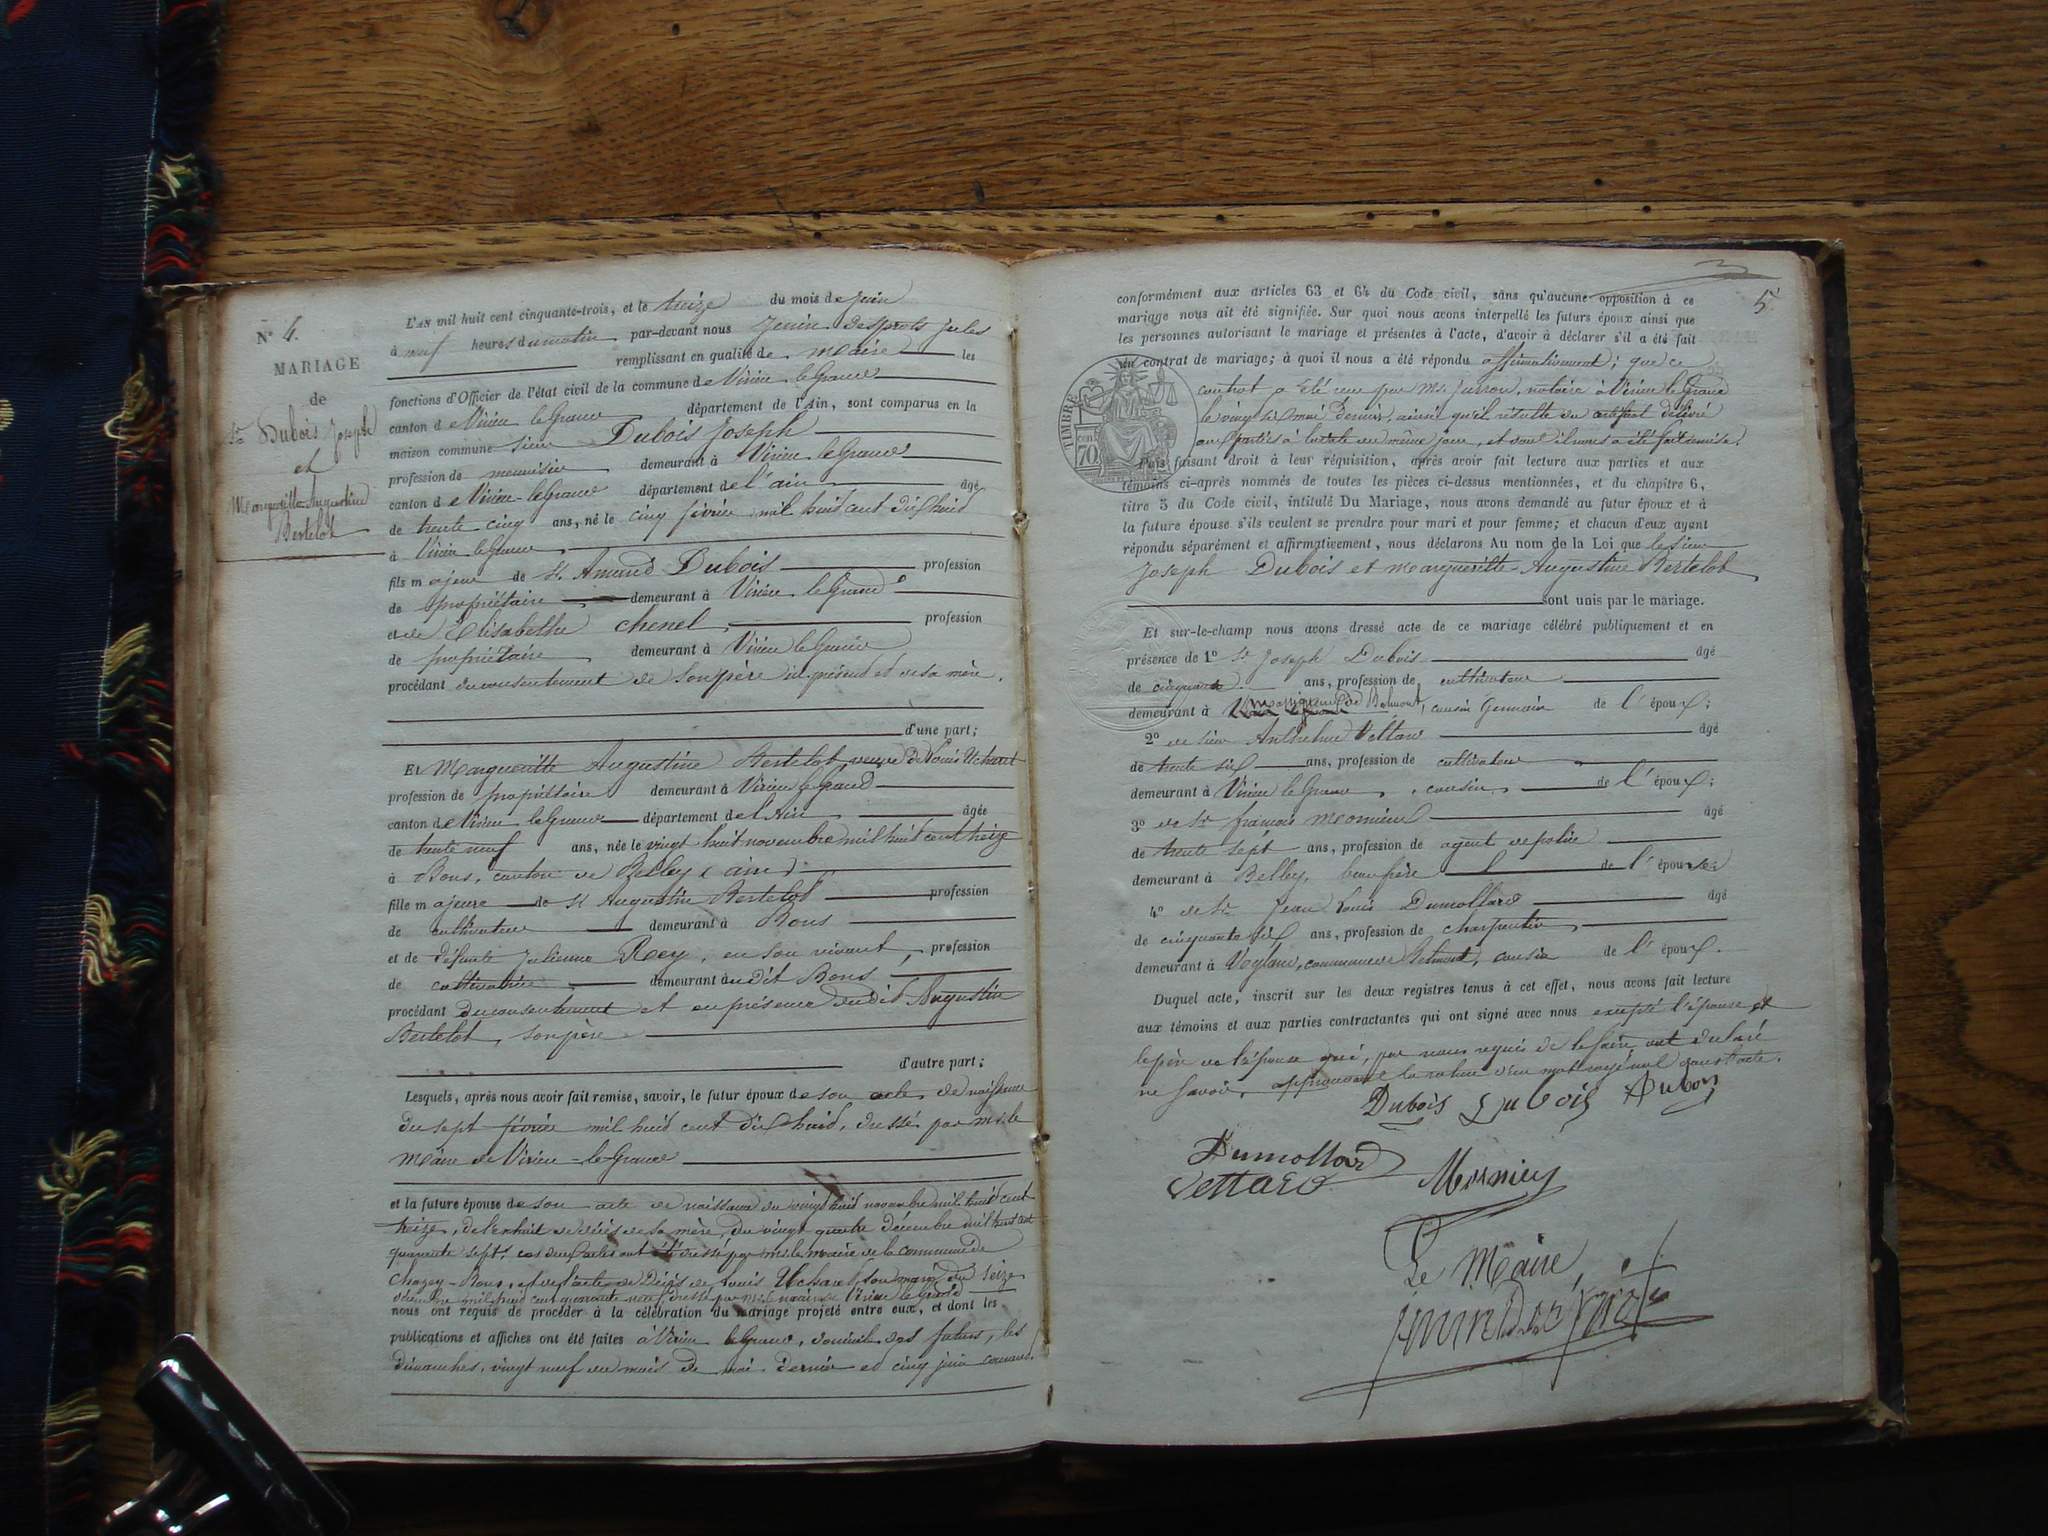 N° 4.
MARIAGE
de
Sr Dubois Joseph
et
Marguerite Augustine
Bertelot
L'AN mil huit cent cinquante-trois, et le treize du mois de Juin
à neuf heures du matin par-devant nous Jenin Desprots Jules
remplissant en qualité de maire les
fonctions d'Officier de l'état civil de la commune de Virieu le Grand
canton de Virieu le Grand département de l'Ain, sont comparus en la
maison commune sieur Dubois Joseph
profession de menuisier demeurant à Virieu le Grand
canton de Virieu-le Grand département de l'ain âgé
de trente cinq ans, né le cinq février mil huit cent dix huit
à Virieu le Grand
fils majeur de Sr. Amand Dubois profession
de propriétaire demeurant à Virieu le Grand
et de Elisabethe Chenel, profession
de propriétaire demeurant à Virieu le Grand
procédant du consentement de son père ici présent et de sa mère.
d'une part;
Et Margueritte Augustine Bertelot, veuve de Louis Uchard
profession de propriétaire demeurant à Virieu le Grand
canton de Virieu le Grand département de l'Ain âgée
de trente neuf ans, née le vingt huit novembre mil huit cent treize
à Bons, canton de Belley (ain)
fille majeure de Sr Augustin Bertelot profession
de cultivateur demeurant à Bons
et de défunte Julienne Rey, en son vivant, profession
de cultivatrice demeurant audit Bons
procédant du consentement et en présence dudit Augustin
Bertelot, son père
d'autre part;
Lesquels, après nous avoir fait remise, savoir, le futur époux de son acte de naissance
du sept février mil huit cent dix huit, dressé par mr. le
Maire de Virieu-le-Grand
et la future épouse de son acte de naissance du vingt huit novembre mil huit cent
treize, de l'extrait de décès de sa mère, du vingt quatre décembre mil huit cent
quarante sept, ces deux actes ont été dressé par mr. le maire de la commune de
Chazey-Bons, et de l'acte de Décès de Louis Uchard, son mari, du seize
décembre mil huit cent quarante neuf dressé par mr. le maire de Virieu le Grand
nous ont requis de procéder à la célébration du mariage projeté entre eux, et dont les
publications et affiches ont été faites à Virieu le Grand, domicile des futurs, les
dimanches, vingt neuf du mois de mai dernier et cinq juin courant.
5
conformément aux articles 63 et 64 du Code civil, sans qu'aucune opposition à ce
mariage nous ait été signifiée. Sur quoi nous avons interpellé les futurs époux ainsi que
les personnes autorisant le mariage et présentes à l'acte, d'avoir à déclarer s'il a été fait
un contrat de mariage; à quoi il nous a été répondu affirmativement; que ce
contrat a été reçu par Mr. notaire à Virieu le Grand
le vingt mai dernier, ainsi qu'il résulte du certificat délivré
aux parties à la date du même jour, et dont il nous a été fait remise.
TIMBRE
70
Puis faisant droit à leur réquisition, après avoir fait lecture aux parties et aux
témoins ci-après nommés de toutes les pièces ci-dessus mentionnées, et du chapitre 6,
titre 5 du Code civil, intitulé Du Mariage, nous avons demandé au futur époux et à
la future épouse s'ils veulent se prendre pour mari et pour femme; et chacun d'eux ayant
répondu séparément et affirmativement, nous déclarons Au nom de la Loi que le sieur
Joseph Dubois et Margueritte-Augustine Bertelot
sont unis par le mariage.
Et sur-le-champ nous avons dressé acte de ce mariage célébré publiquement et en
présence de 1° Sr Joseph Dubois âgé
de cinquante ans, profession de cultivateur
demeurant à Massignieu de Belmont, cousin Germain de l'époux;
2° de sieur Anthelme Vettard âgé
de trente six ans, profession de cultivateur
demeurant à Virieu le Grand, cousin, de l'époux;
3° de Sr françois âgé
de trente sept ans, profession de agent de police
demeurant à Belley, beau frère de l'épouse;
4° de Sr Jean Louis Dumollard âgé
de cinquante six ans, profession de charpentier,
demeurant à commune de Belmont, cousin de l'époux.
Duquel acte, inscrit sur les deux registres tenus à cet effet, nous avons fait lecture
aux témoins et aux parties contractantes qui ont signé avec nous excepté l'épouse et
le père de l'épouse qui, par nous requis de le faire, ont déclaré
ne savoir, approuvant la rature d'un mot rayé nul dans l'acte.
Dubois Dubois Dubois
Dumollard
Vettard
Le Maire
Jenin Desprots